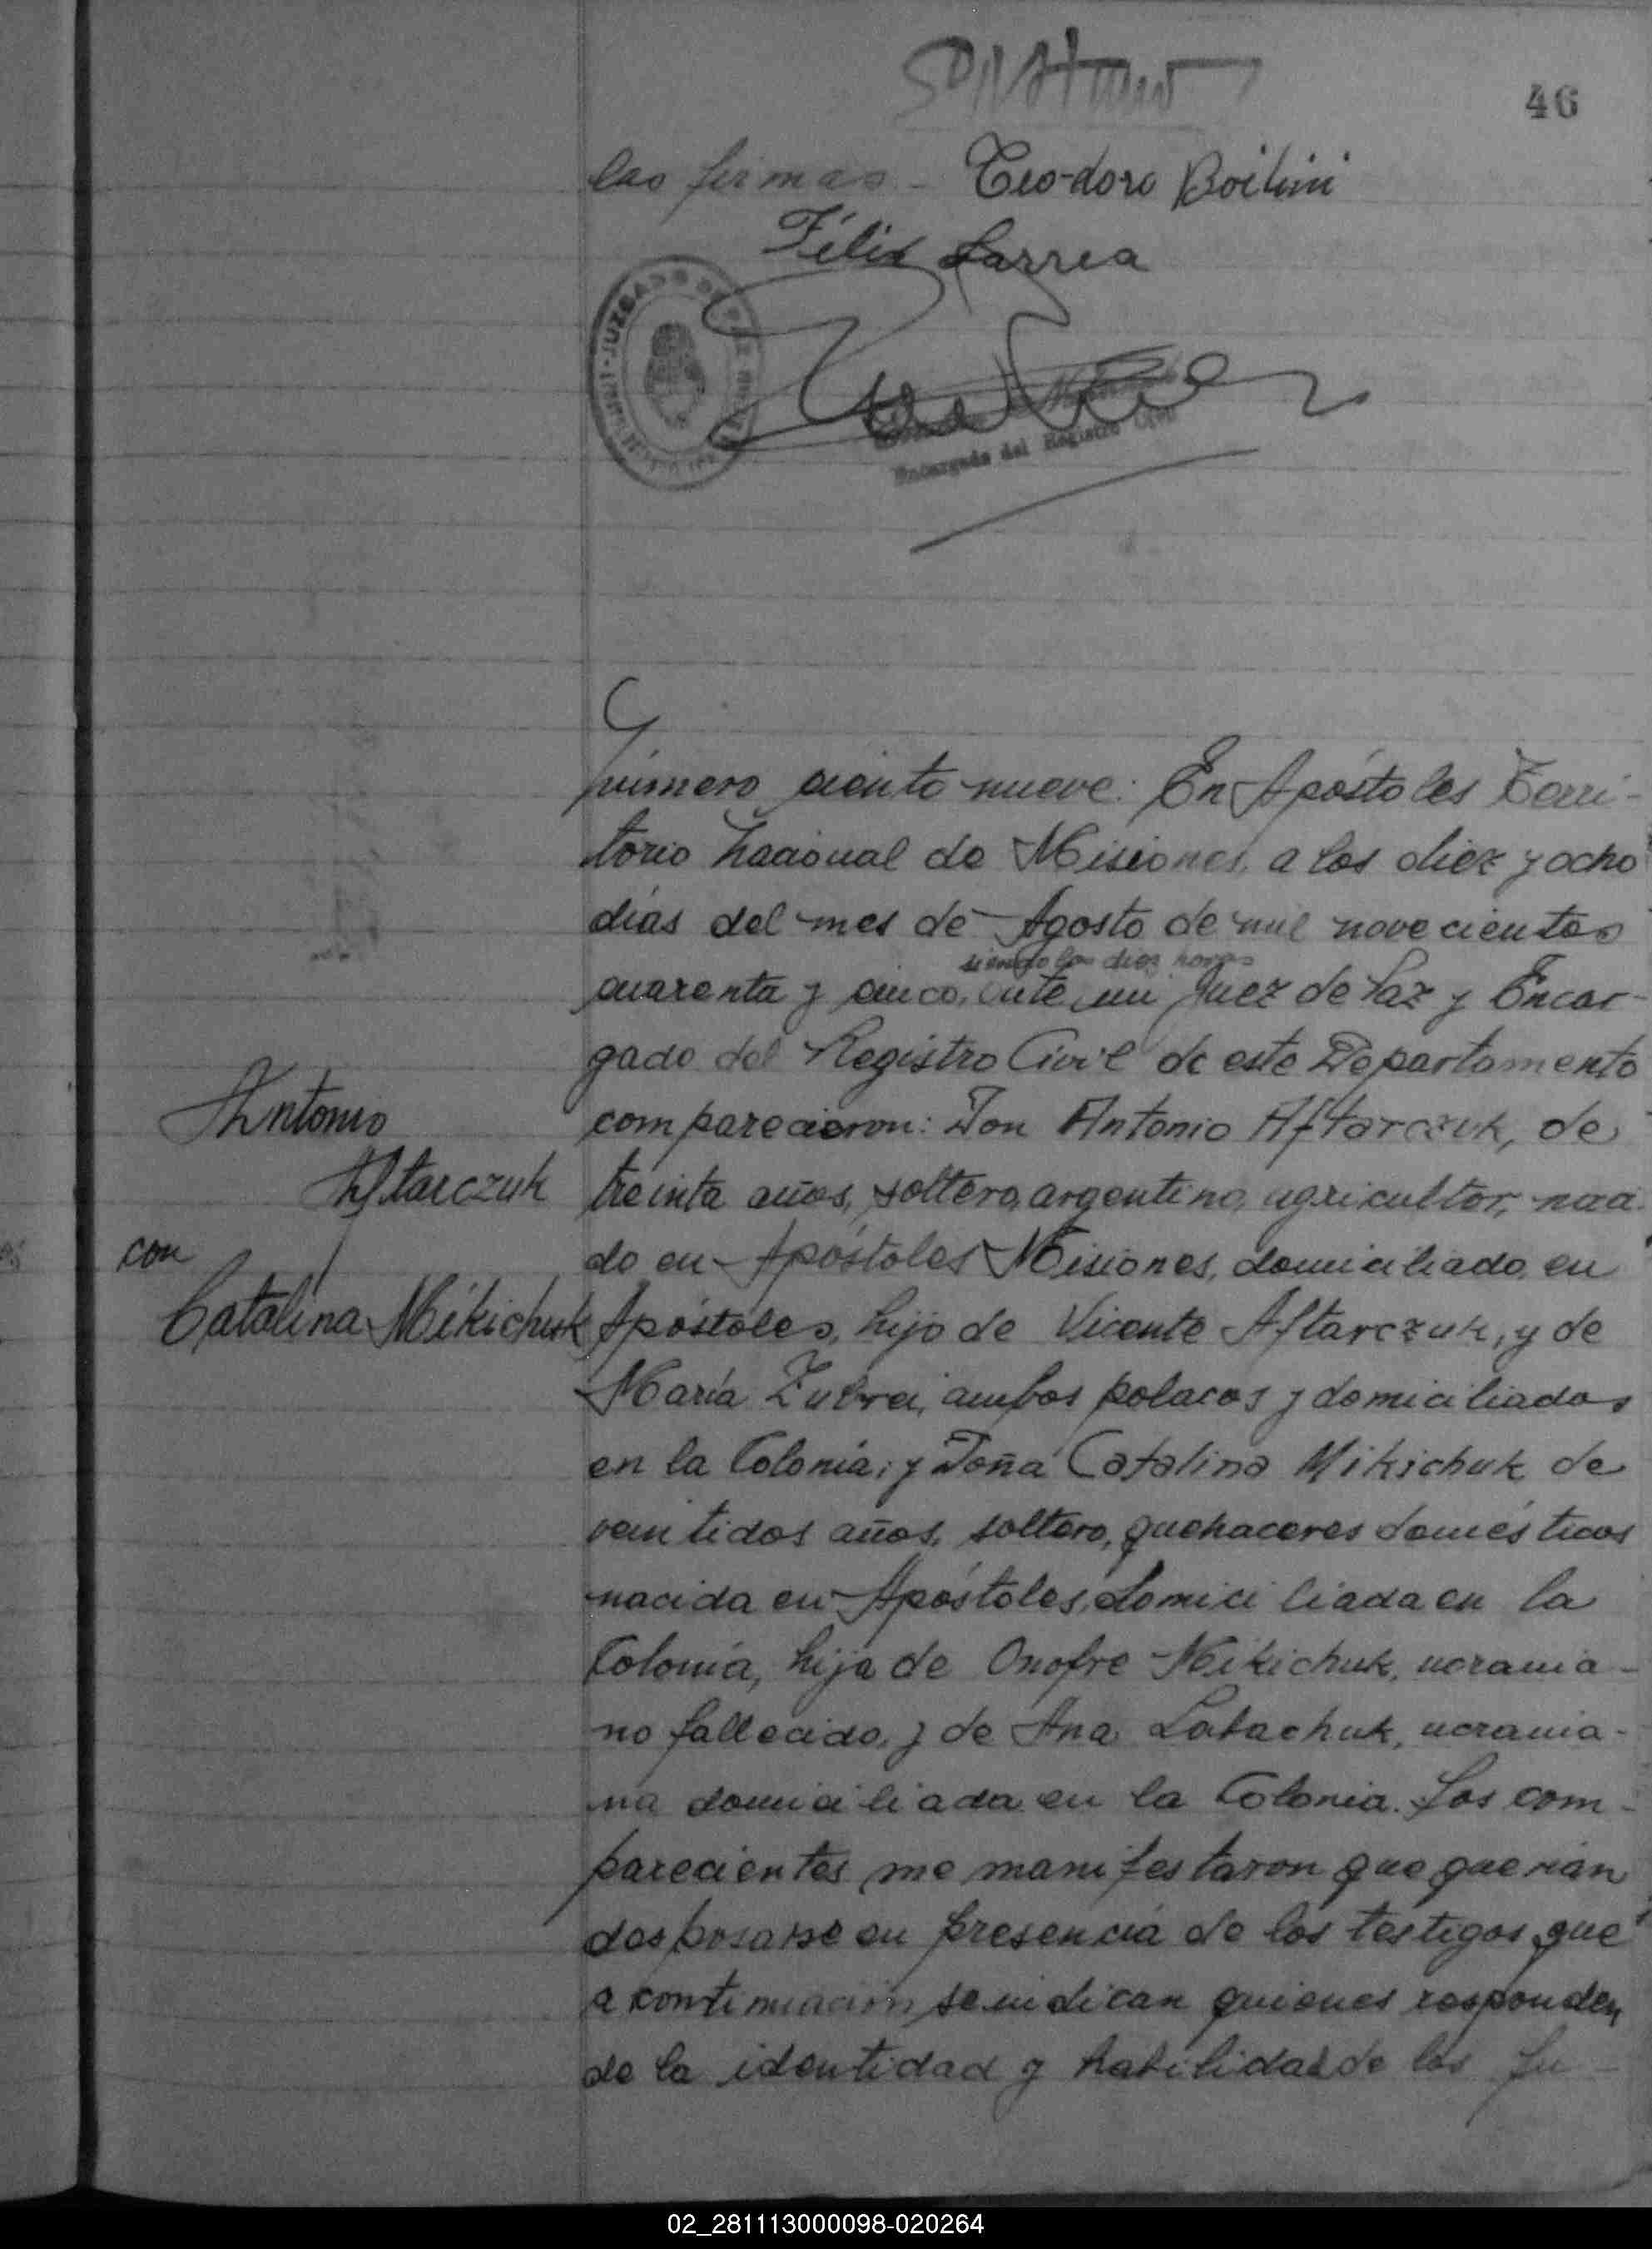 46
las firmas - Teodoro Boilini
Félix Larrea
JUZGADO DE PAZ
Encargado del Registro Civil
Número ciento nueve: En Apóstoles Terri-
torio Nacional de Misiones, a los diez y ocho
días del mes de Agosto de mil novecientos
siendo las diez horas
cuarenta y cinco, ante mi Juez de Paz y Encar-
gado del Registro Civil de este Departamento
comparecieron: Don Antonio Aftarczuk, de
treinta años, soltero, argentino, agricultor, naci-
do en Apóstoles Misiones, domiciliado en
Apóstoles, hijo de Vicente Aftarczuk, y de
María Zubrei, ambos polacos y domiciliados
en la Colonia; y Doña Catalina Mikichuk de
veintidos años, soltera, quehaceres domésticos
nacida en Apóstoles, domiciliada en la
Colonia, hija de Onofre Mikichuk, ucrania-
no fallecido, y de Ana Labachuk, ucrania-
na domiciliada en la Colonia. Los com-
parecientes me manifestaron que querían
desposarse en presencia de los testigos que
a continuación se indican quienes responden
de la identidad y habilidad de los fu-
Antonio
Aftarczuk
con
Catalina Mikichuk
02_281113000098-020264